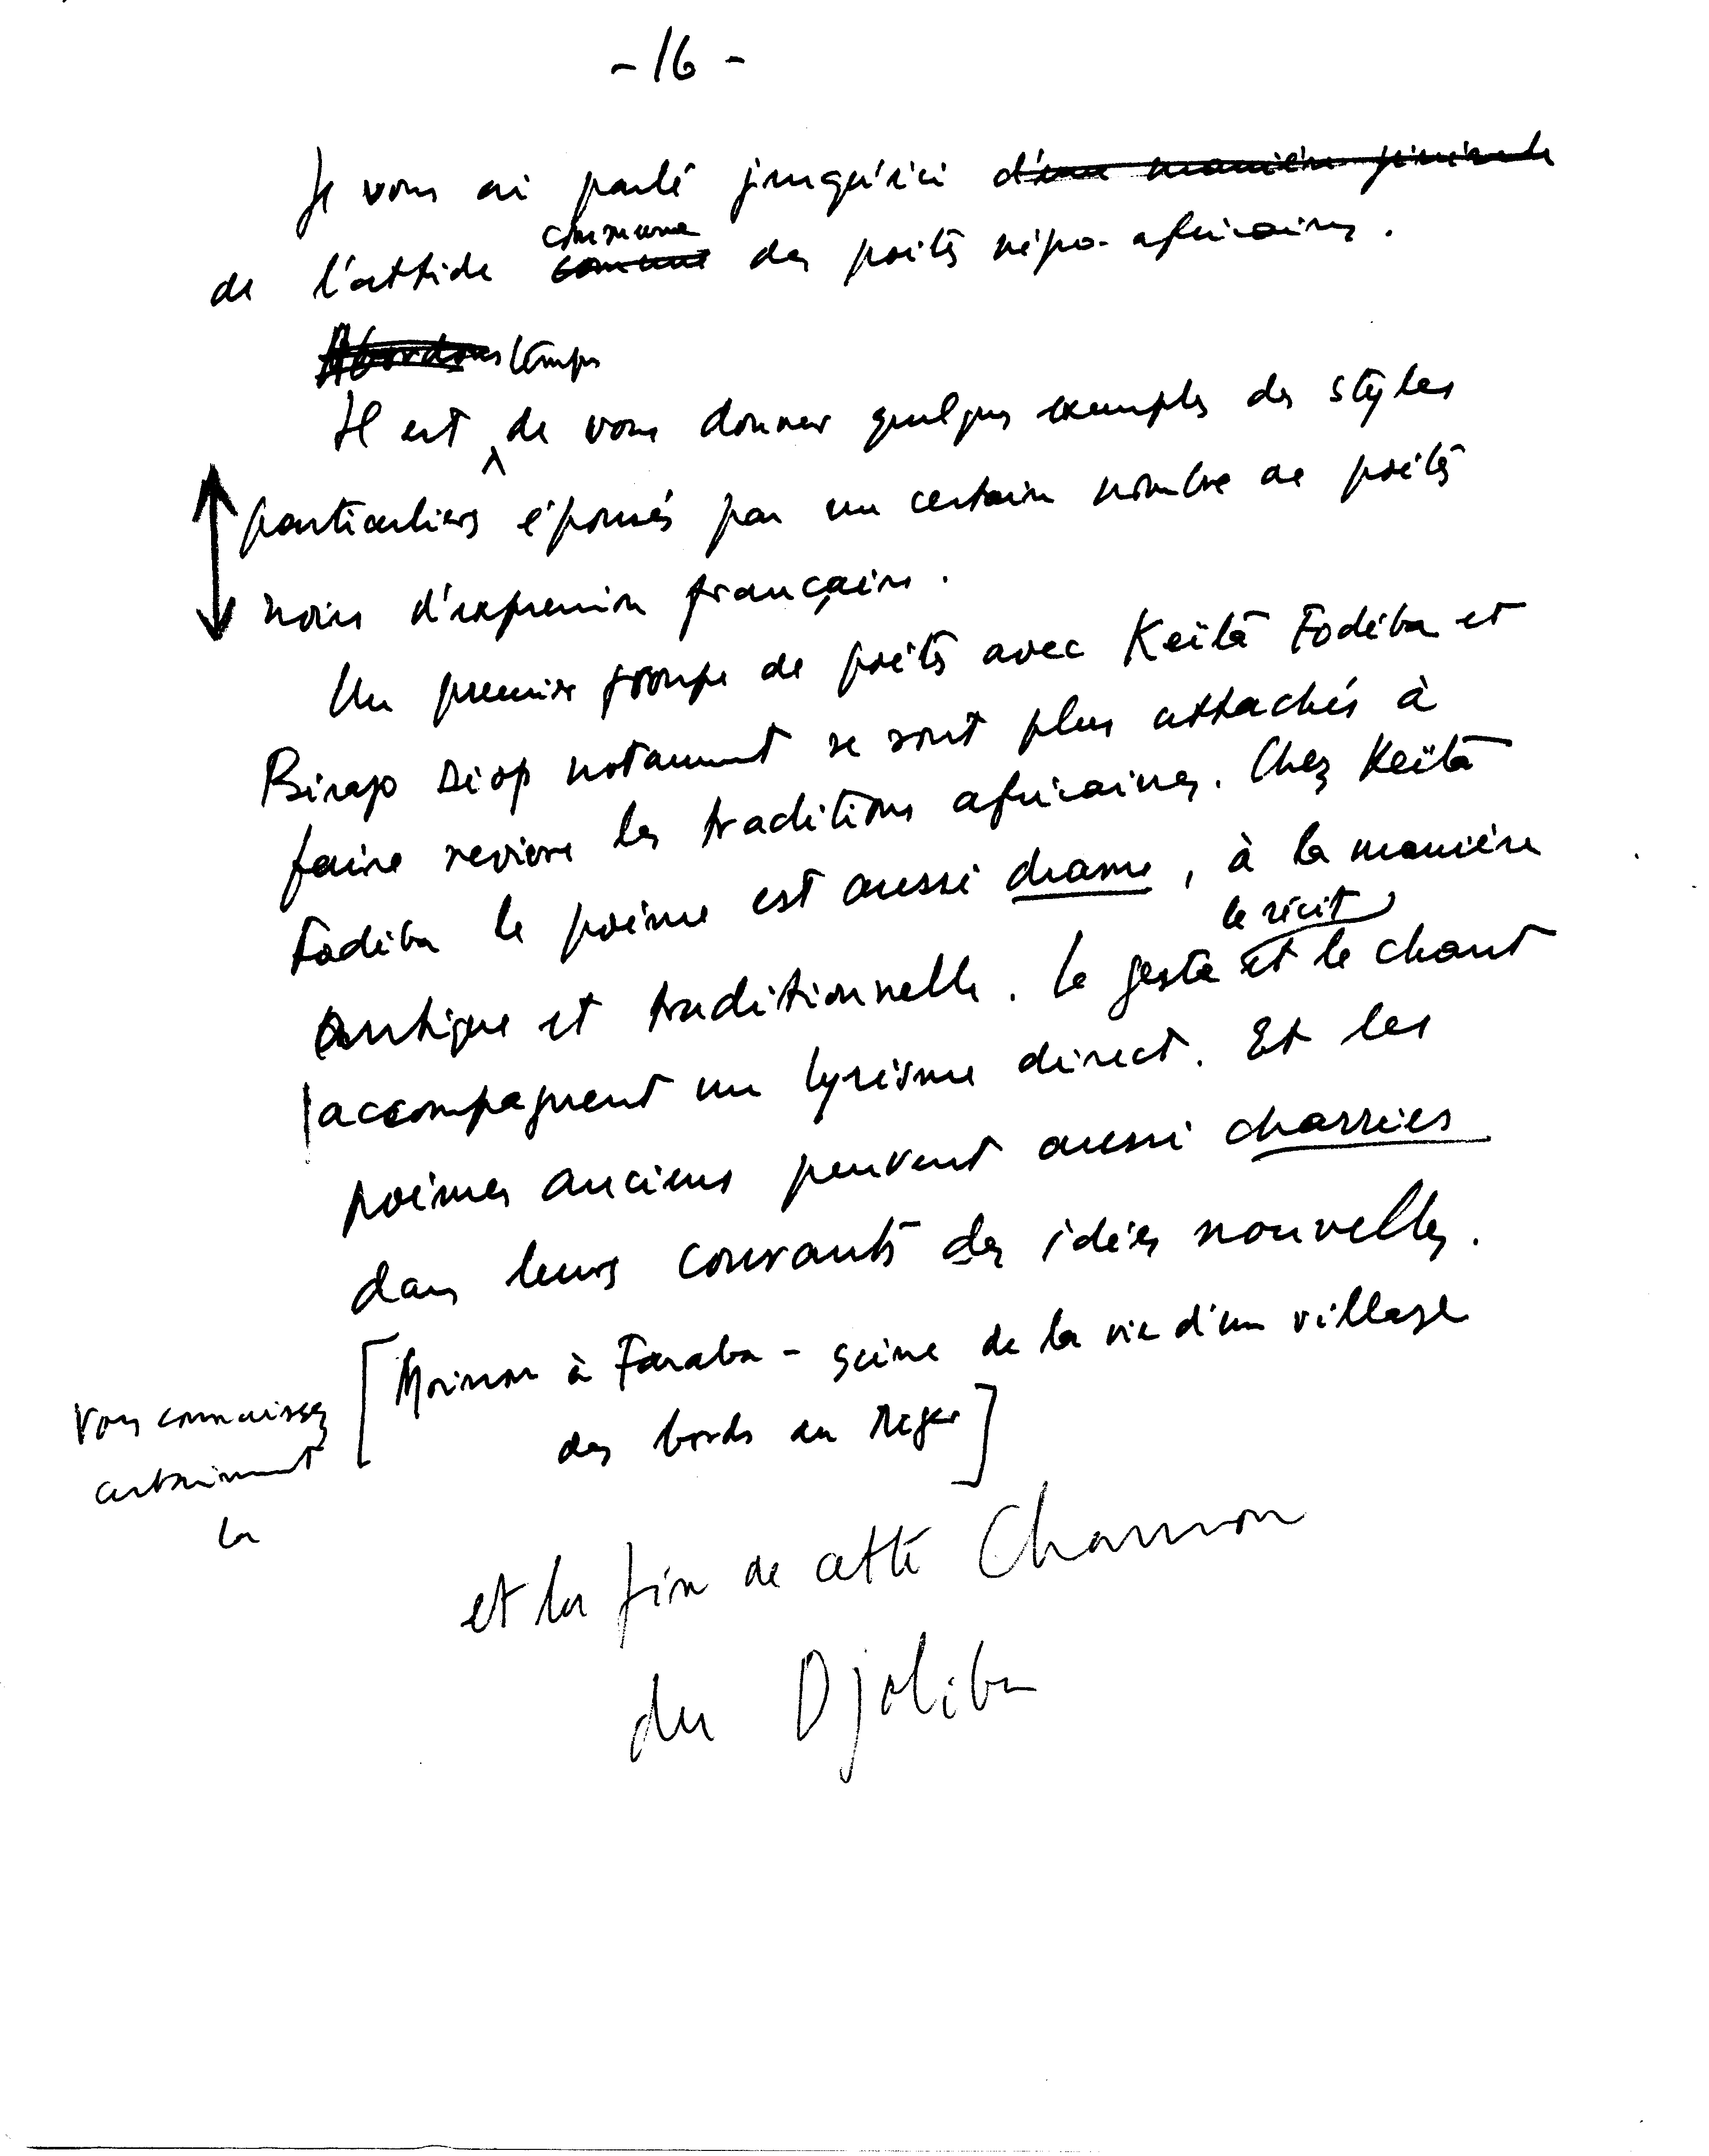 - 16 -
Je vous ai parlé jusqu'ici d'une manière générale
commune
de l'attitude commune des poètes négro-africains.
Abordons temps
Il est de vous donner quelques exemples des styles
particuliers épousés par un certain nombre de poètes
noirs d'expression française.
Un premier groupe de poètes avec Keïta Fodéba et
Birago Diop notamment se sont plus attachés à
faire revivre les traditions africaines. Chez Keïta
Fodéba le poème est aussi drame, à la manière
le récit
antique et traditionnelle. Le geste et le chant
accompagnent un lyrisme direct. Et les
poèmes anciens peuvent aussi charriés
dans leurs courants des idées nouvelles.
[Moisson à Faraba - scène de la vie d'un village
des bords du Niger]
Vous connaissez
certainement
la
et la fin de cette Chanson
du Djoliba